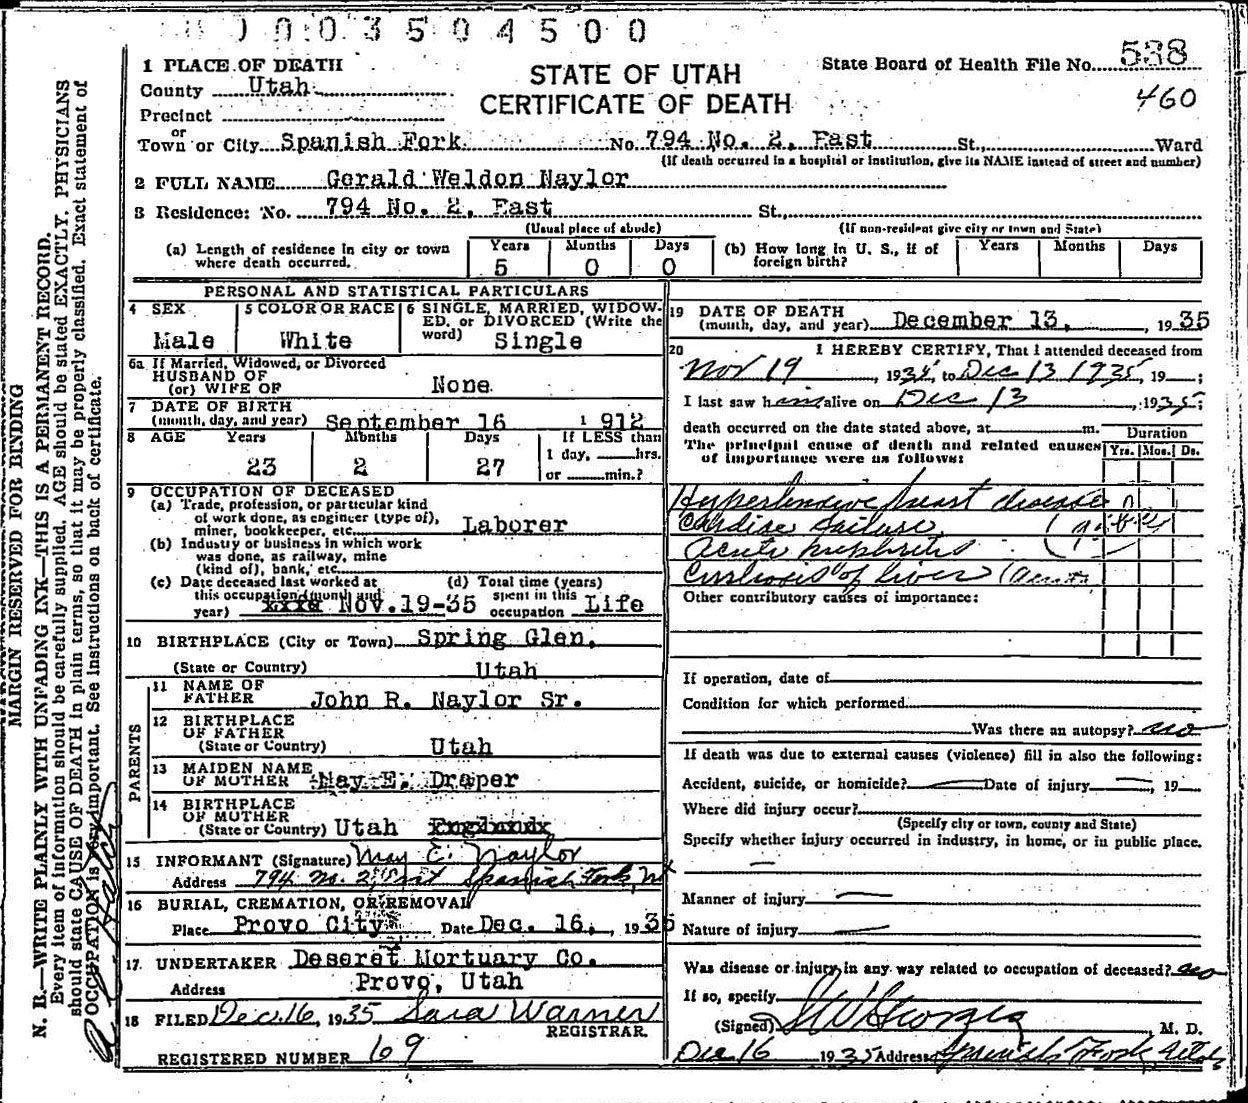 0003504500
1 PLACE OF DEATH
STATE OF UTAH
CERTIFICATE OF DEATH
State Board of Health File No. 538
460
County Utah
Precinct
or
Town or City Spanish Fork No. 794 No. 2, East St., Ward
(If death occurred in a hospital or institution, give its NAME instead of street and number)
2 FULL NAME Gerald Weldon Naylor
3 Residence: No. 794 No. 2, East St.,
(Usual place of abode) (If non-resident give city or town and State)
(a) Length of residence in city or town where death occurred. Years 5 Months 0 Days 0
(b) How long in U. S., if of foreign birth? Years Months Days
PERSONAL AND STATISTICAL PARTICULARS
4 SEX Male
5 COLOR OR RACE White
6 SINGLE, MARRIED, WIDOWED, or DIVORCED (Write the word) Single
6a If Married, Widowed, or Divorced
HUSBAND OF
(or) WIFE OF None
7 DATE OF BIRTH
(month, day, and year) September 16 1912
8 AGE Years 23 Months 2 Days 27
If LESS than
1 day, hrs.
or min.?
9 OCCUPATION OF DECEASED
(a) Trade, profession, or particular kind
of work done, as engineer (type of),
miner, bookkeeper, etc. Laborer
(b) Industry or business in which work
was done, as railway, mine
(kind of), bank, etc.
(c) Date deceased last worked at
this occupation (month and
year) Nov. 19-35
(d) Total time (years)
spent in this
occupation Life
10 BIRTHPLACE (City or Town) Spring Glen,
(State or Country) Utah
PARENTS
11 NAME OF
FATHER John R. Naylor Sr.
12 BIRTHPLACE
OF FATHER
(State or Country) Utah
13 MAIDEN NAME
OF MOTHER May E. Draper
14 BIRTHPLACE
OF MOTHER
(State or Country) Utah England
15 INFORMANT (Signature) May E. Naylor
Address 794 No. 2, East Spanish Fork, Ut
16 BURIAL, CREMATION, OR REMOVAL
Place Provo City Date Dec. 16, 1935
17. UNDERTAKER Deseret Mortuary Co.
Address Provo, Utah
18 FILED Dec. 16, 1935 Sara Warner
REGISTRAR
REGISTERED NUMBER 69
19 DATE OF DEATH
(month, day, and year) December 13, 1935
20 I HEREBY CERTIFY, That I attended deceased from
Nov 19, 1935, to Dec 13 1935, 19 ;
I last saw him alive on Dec 13, 1935;
death occurred on the date stated above, at m.
The principal cause of death and related causes
of importance were as follows:
Duration
Yrs. Mos. Ds.
Hypertensive heart disease
Cardiac failure
Acute nephritis
Cirrhosis of liver (acute
Other contributory causes of importance:
If operation, date of
Condition for which performed
Was there an autopsy? no
If death was due to external causes (violence) fill in also the following:
Accident, suicide, or homicide? Date of injury , 19
Where did injury occur?
(Specify city or town, county and State)
Specify whether injury occurred in industry, in home, or in public place.
Manner of injury
Nature of injury
Was disease or injury in any way related to occupation of deceased? no
If so, specify
(Signed) , M. D.
Dec 16 1935 Address Spanish Fork Utah
MARGIN RESERVED FOR BINDING
N. B.—WRITE PLAINLY WITH UNFADING INK—THIS IS A PERMANENT RECORD.
Every item of information should be carefully supplied. AGE should be stated EXACTLY. PHYSICIANS
should state CAUSE OF DEATH in plain terms, so that it may be properly classified. Exact statement of
OCCUPATION is very important. See instructions on back of certificate.